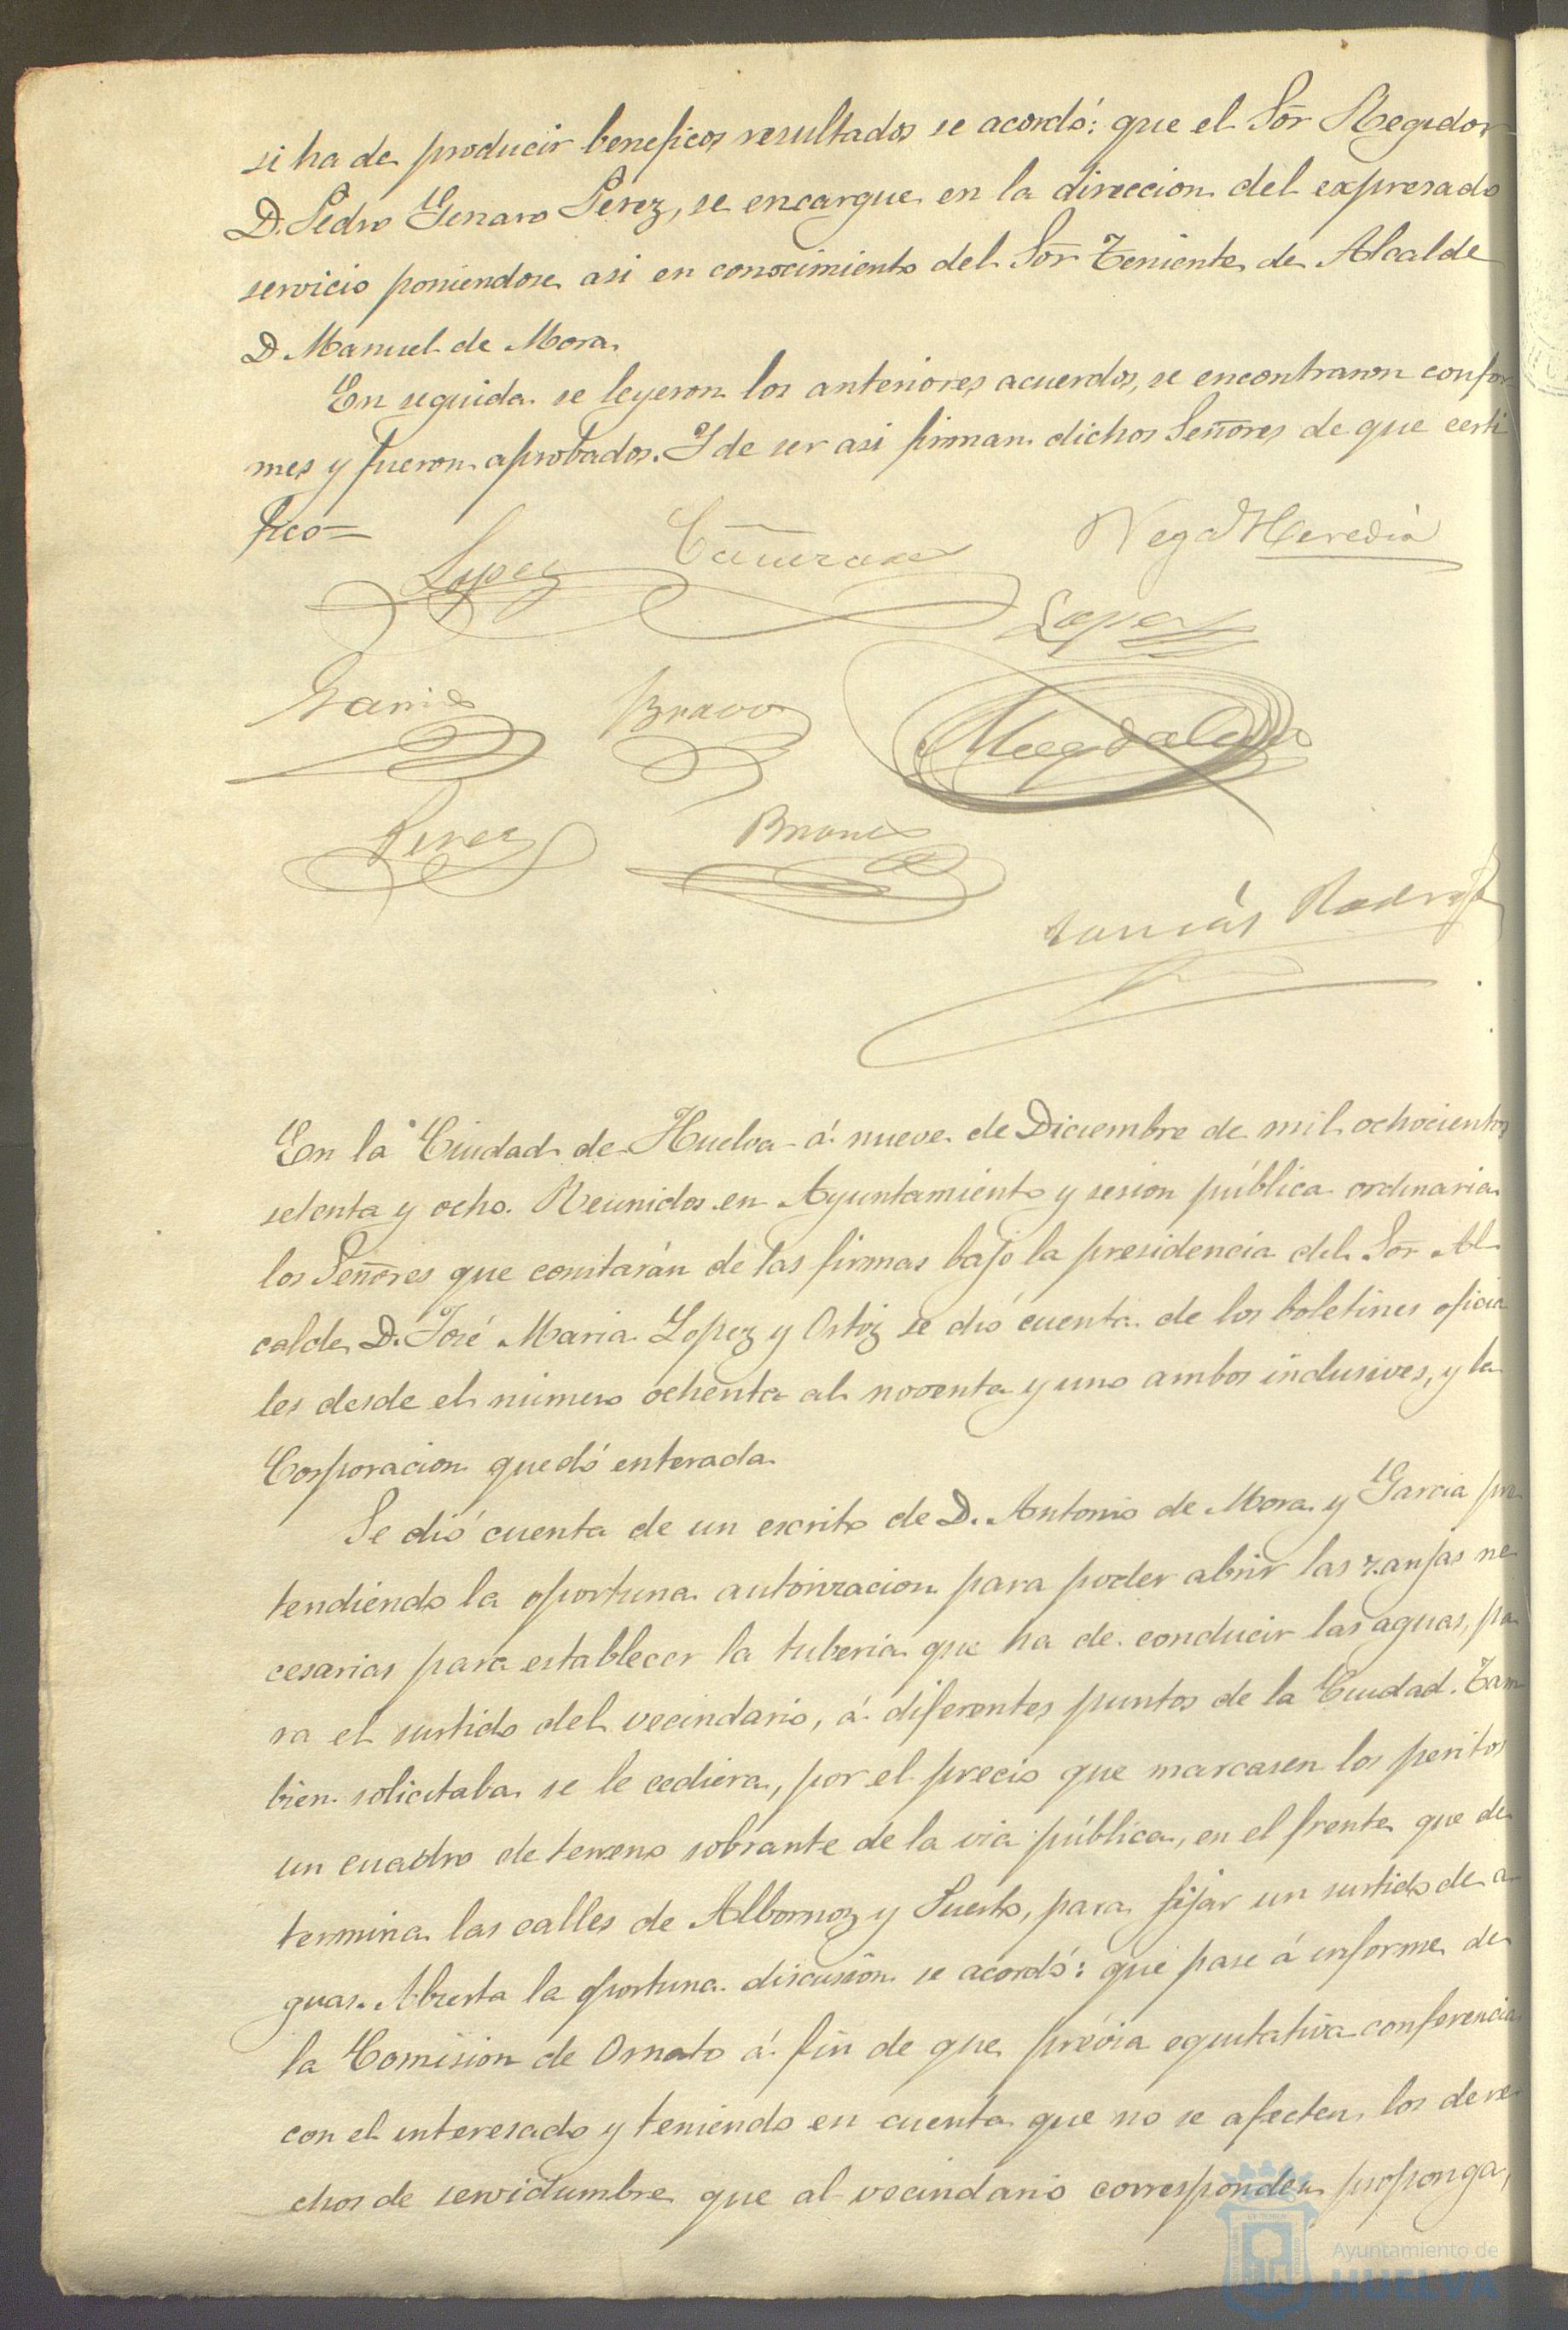 si ha de producir beneficos resultados se acordó: que el Sōr Regidor
D. Pedro Genaro Perez, se encargue en la direccion del expresado
servicio poniendose asi en conocimiento del Sōr Teniente de Alcalde
D Manuel de Mora.
En seguida se leyeron los anteriores acuerdos, se encontraron confor
mes y fueron aprobados. Y de ser asi firman dichos Señores de que certi
fico=
Lopez Cañizares Vega Heredia
Lopez
Garcia Bravo Magdaleno
Perez Briones
Tomás Rodrig
En la Ciudad de Huelva á nueve de Diciembre de mil ochocientos
setenta y ocho. Reunidos en Ayuntamiento y sesion pública ordinaria
los Señores que constarán de las firmas bajo la presidencia del Sōr Al
calde D. José Maria Lopez y Ortiz se dió cuenta de los boletines oficia
les desde el número ochenta al noventa y uno ambos inclusives, y la
Corporacion quedó enterada.
Se dió cuenta de un escrito de D. Antonio de Mora y Garcia pre
tendiendo la oportuna autorizacion para poder abrir las zanjas ne
cesarias para establecer la tuberia que ha de conducir las aguas, pa
ra el surtido del vecindario, á diferentes puntos de la Ciudad. Tam
bien solicitaba se le cediera, por el precio que marcasen los peritos
un cuadro de terreno sobrante de la via pública, en el frente que de
termina las calles de Albornoz y Puerto, para fijar un surtido de a
guas. Abierta la oportuna discusion se acordó: que pase á informe de
la Comision de Ornato á fin de que prévia equitativa conferencia
con el interesado y teniendo en cuenta que no se afecten los dere
chos de servidumbre que al vecindario corresponden proponga,
Ayuntamiento de
HUELVA